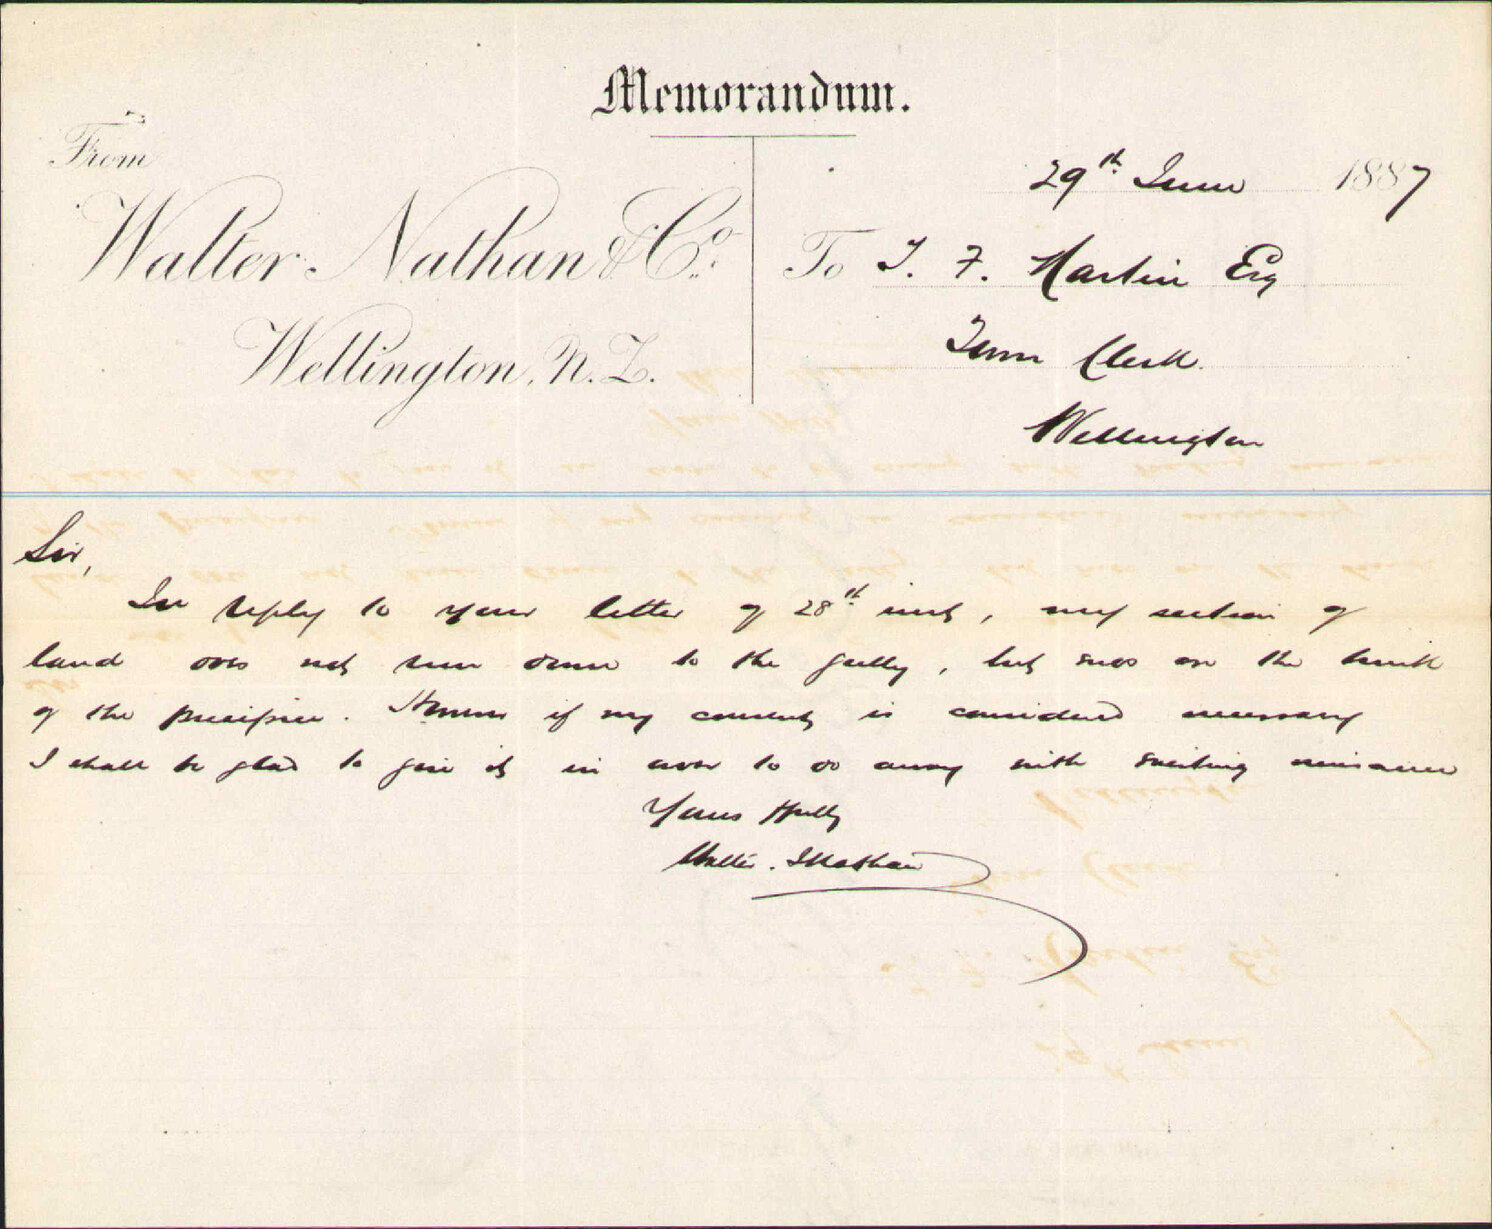 Memorandum.
From
Walter Nathan & Co.
Wellington, N.Z.
29th June 1887
To J. F. Martin Esq
Town Clerk
Wellington
Sir,
In reply to your letter of 28th inst, my section of
land does not run down to the gully, but ends on the brink
of the precipice. However if my consent is considered necessary
I shall be glad to give it in order to do away with existing nuisance
Yours ffully
Walter. J Nathan